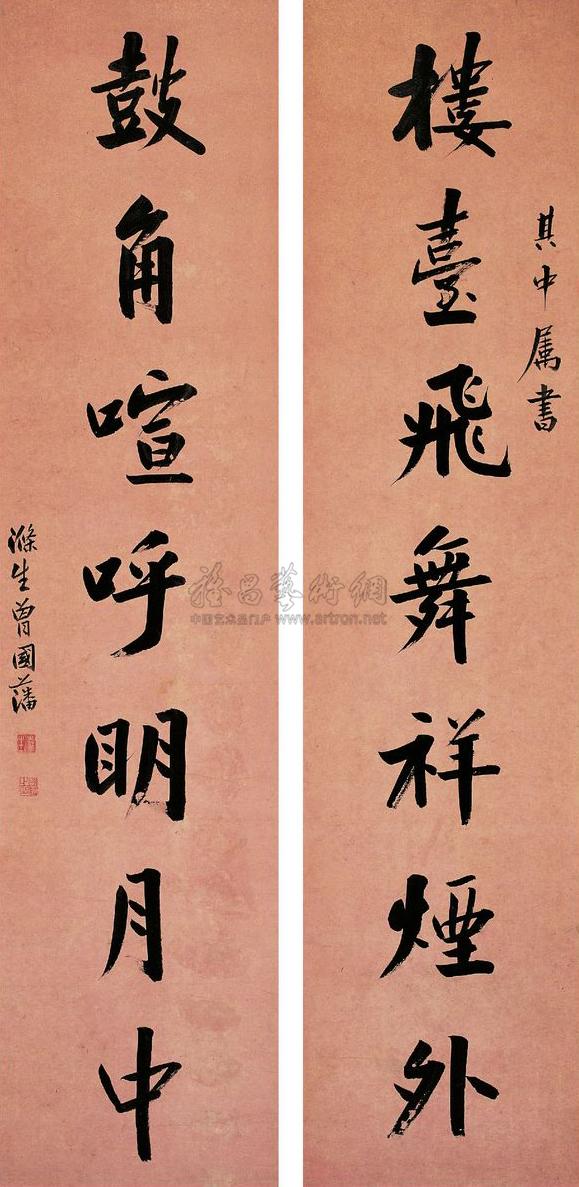 其中属書
樓臺飛舞祥煙外
鼓角喧呼明月中
滌生曾國藩
中国艺术品门户 www.artron.net